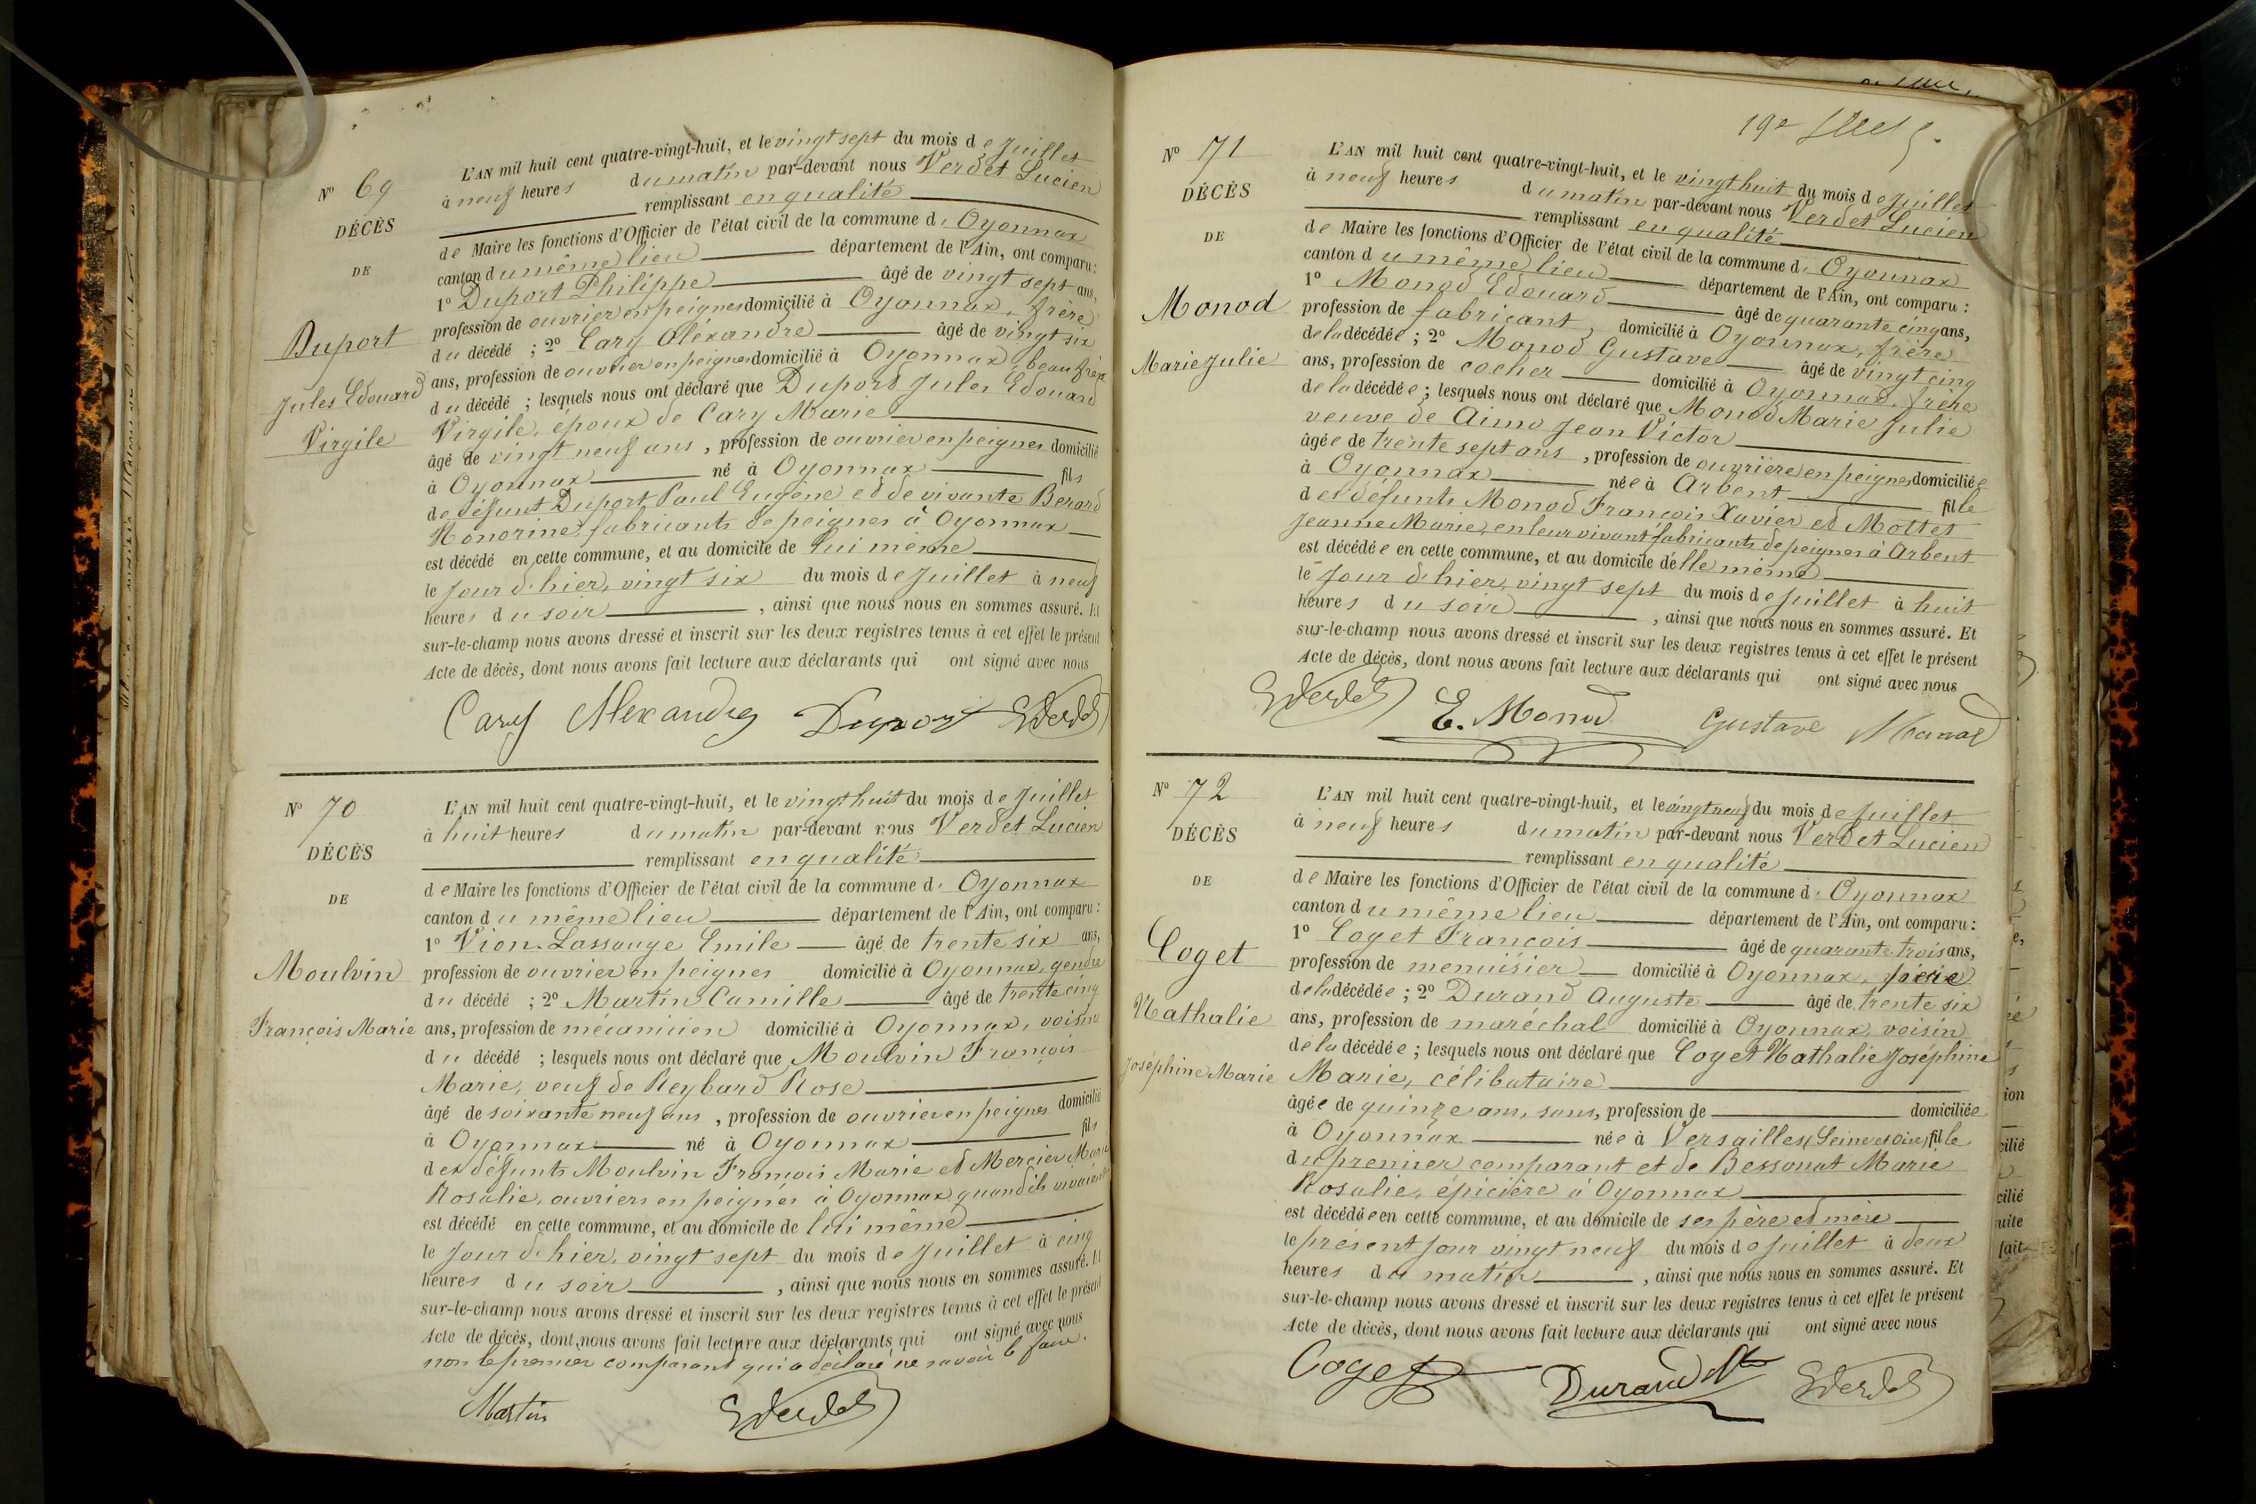 N° 69
DÉCÈS
DE
Duport
Jules Edouard
Virgile
L'AN mil huit cent quatre-vingt-huit, et le vingt sept du mois de Juillet
à neuf heures du matin par-devant nous Verdet Lucien
remplissant en qualité
de Maire les fonctions d'Officier de l'état civil de la commune d' Oyonnax
canton du même lieu département de l'Ain, ont comparu :
1° Duport Philippe âgé de vingt sept ans,
profession de ouvrier en peignes domicilié à Oyonnax, frère
du décédé ; 2° Cary Alexandre âgé de vingt six
ans, profession de ouvrier en peignes domicilié à Oyonnax, beau frère
du décédé ; lesquels nous ont déclaré que Duport Jules Edouard
Virgile, époux de Cary Marie
âgé de vingt neuf ans, profession de ouvrier en peignes domicilié
à Oyonnax né à Oyonnax fils
de défunt Duport Paul Eugène et de vivante Berard
Honorine, fabricants de peignes à Oyonnax
est décédé en cette commune, et au domicile de lui même
le jour d'hier, vingt six du mois de Juillet à neuf
heures du soir, ainsi que nous nous en sommes assuré. Et
sur-le-champ nous avons dressé et inscrit sur les deux registres tenus à cet effet le présent
Acte de décès, dont nous avons fait lecture aux déclarants qui ont signé avec nous
Cary Alexandre Duport LVerdet
N° 70
DÉCÈS
DE
Moulvin
François Marie
L'AN mil huit cent quatre-vingt-huit, et le vingt huit du mois de Juillet
à huit heures du matin par-devant nous Verdet Lucien
remplissant en qualité
de Maire les fonctions d'Officier de l'état civil de la commune d' Oyonnax
canton du même lieu département de l'Ain, ont comparu :
1° Vion-Lassauge Emile âgé de trente six ans,
profession de ouvrier en peignes domicilié à Oyonnax, gendre
du décédé ; 2° Martin Camille âgé de trente cinq
ans, profession de mécanicien domicilié à Oyonnax, voisin
du décédé ; lesquels nous ont déclaré que Moulvin François
Marie, veuf de Reybard Rose
âgé de soixante neuf ans, profession de ouvrier en peignes domicilié
à Oyonnax né à Oyonnax fils
des défunts Moulvin François Marie et Mercier Marie
Rosalie, ouvriers en peignes à Oyonnax quand ils vivaient
est décédé en cette commune, et au domicile de lui même
le jour d'hier, vingt sept du mois de Juillet à cinq
heures du soir, ainsi que nous nous en sommes assuré. Et
sur-le-champ nous avons dressé et inscrit sur les deux registres tenus à cet effet le présent
Acte de décès, dont nous avons fait lecture aux déclarants qui ont signé avec nous
non le premier comparant qui a déclaré ne savoir le faire.
Martin LVerdet
19e
N° 71
DÉCÈS
DE
Monod
Marie Julie
L'AN mil huit cent quatre-vingt-huit, et le vingt huit du mois de Juillet
à neuf heures du matin par-devant nous Verdet Lucien
remplissant en qualité
de Maire les fonctions d'Officier de l'état civil de la commune d' Oyonnax
canton du même lieu département de l'Ain, ont comparu :
1° Monod Edouard âgé de quarante cinq ans,
profession de fabricant, domicilié à Oyonnax, frère
de la décédée ; 2° Monod Gustave âgé de vingt cinq
ans, profession de cocher domicilié à Oyonnax, frère
de la décédée ; lesquels nous ont déclaré que Monod Marie Julie
veuve de Aimo Jean Victor
âgée de trente sept ans, profession de ouvrière en peignes domiciliée
à Oyonnax née à Arbent fille
des défunts Monod François Xavier et Mottet
Jeanne Marie, en leur vivant fabricants de peignes à Arbent
est décédée en cette commune, et au domicile d'elle même
le jour d'hier, vingt sept du mois de Juillet à huit
heures du soir, ainsi que nous nous en sommes assuré. Et
sur-le-champ nous avons dressé et inscrit sur les deux registres tenus à cet effet le présent
Acte de décès, dont nous avons fait lecture aux déclarants qui ont signé avec nous
LVerdet E. Monod Gustave Monod
N° 72
DÉCÈS
DE
Coget
Nathalie
Joséphine Marie
L'AN mil huit cent quatre-vingt-huit, et le vingt neuf du mois de Juillet
à neuf heures du matin par-devant nous Verdet Lucien
remplissant en qualité
de Maire les fonctions d'Officier de l'état civil de la commune d' Oyonnax
canton du même lieu département de l'Ain, ont comparu :
1° Coget François âgé de quarante trois ans,
profession de menuisier domicilié à Oyonnax, père
de la décédée ; 2° Durand Auguste âgé de trente six
ans, profession de maréchal domicilié à Oyonnax, voisin
de la décédée ; lesquels nous ont déclaré que Coget Nathalie Joséphine
Marie, célibataire
âgée de quinze ans, sans, profession de domiciliée
à Oyonnax née à Versailles (Seine et Oise) fille
du premier comparant et de Bessonat Marie
Rosalie, épicière à Oyonnax
est décédée en cette commune, et au domicile de ses père et mère
le présent jour vingt neuf du mois de Juillet à deux
heures du matin, ainsi que nous nous en sommes assuré. Et
sur-le-champ nous avons dressé et inscrit sur les deux registres tenus à cet effet le présent
Acte de décès, dont nous avons fait lecture aux déclarants qui ont signé avec nous
Coget Durand LVerdet